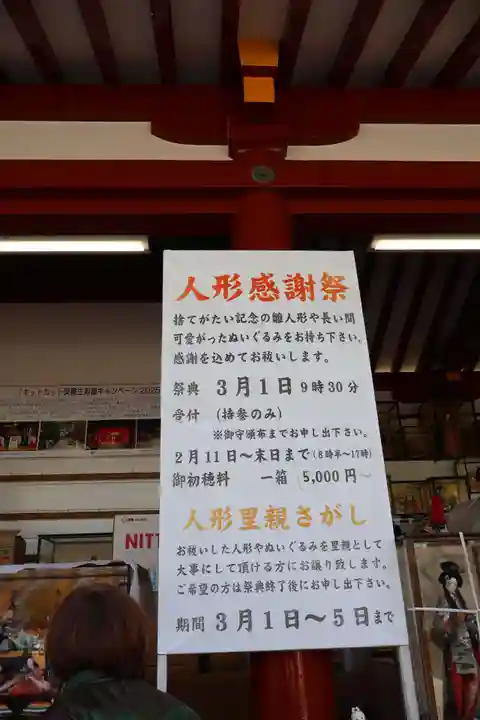 人形感謝祭
捨てがたい記念の雛人形や長い間
可愛がったぬいぐるみをお持ち下さい。
感謝を込めてお祓いします。
祭典 3月1日 9時30分
受付 (持参のみ)
※御守頒布までお申し出下さい。
2月11日〜末日まで(8時半〜17時)
御初穂料 一箱 5,000円〜
人形里親さがし
お祓いした人形やぬいぐるみを里親として
大事にして頂ける方にお譲り致します。
ご希望の方は祭典終了後にお申し出下さい。
期間 3月1日〜5日まで
NITT